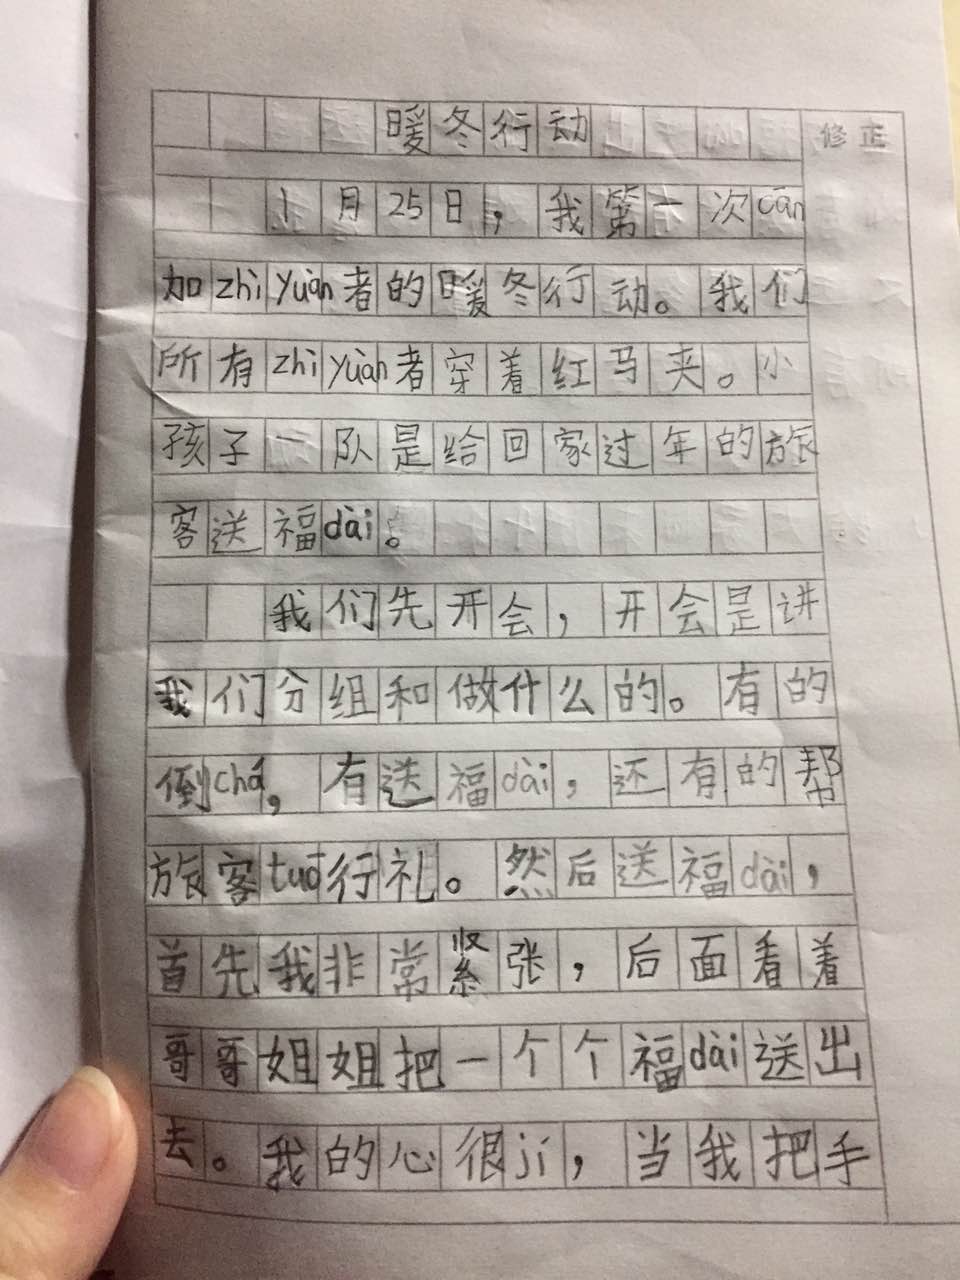 暖冬行动
修正
1月25日，我第一次cān
加zhìyuàn者的暖冬行动。我们
所有zhìyuàn者穿着红马夹。小
孩子一队是给回家过年的旅
客送福dài。
我们先开会，开会是讲
我们分组和做什么的。有的
倒chá，有送福dài，还有的帮
旅客tuō行礼。然后送福dài，
首先我非常紧张，后面看着
哥哥姐姐把一个个福dài送出
去。我的心很jí，当我把手